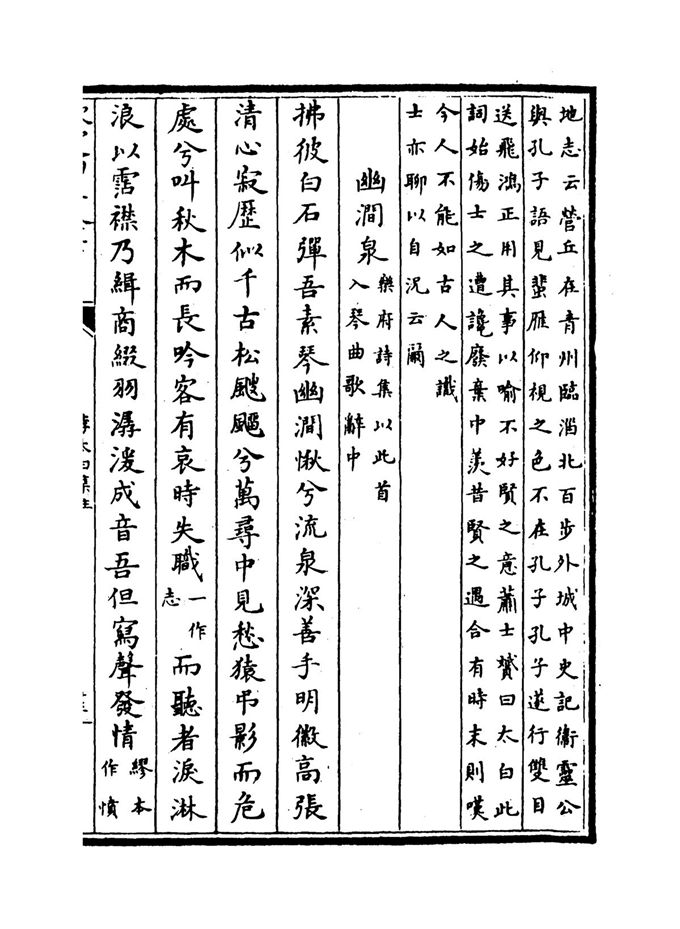 地志云營丘在青州臨淄北百步外城中史記衞靈公
與孔子語見蜚雁仰視之色不在孔子孔子遂行雙目
送飛鴻正用其事以喻不好賢之意蕭士贇曰太白此
詞始傷士之遭讒廢棄中羡昔賢之遇合有時末則嘆
今人不能如古人之識
士亦聊以自況云爾
幽澗泉
樂府詩集以此首
入琴曲歌辭中
拂彼白石彈吾素琴幽澗愀兮流泉深善手明徽高張
清心寂歴似千古松颼飀兮萬尋中見愁猿弔影而危
處兮叫秋木而長吟客有哀時失職一作志而聽者淚淋
浪以霑襟乃緝商綴羽潺湲成音吾但寫聲發情繆本作憤
李太白集註